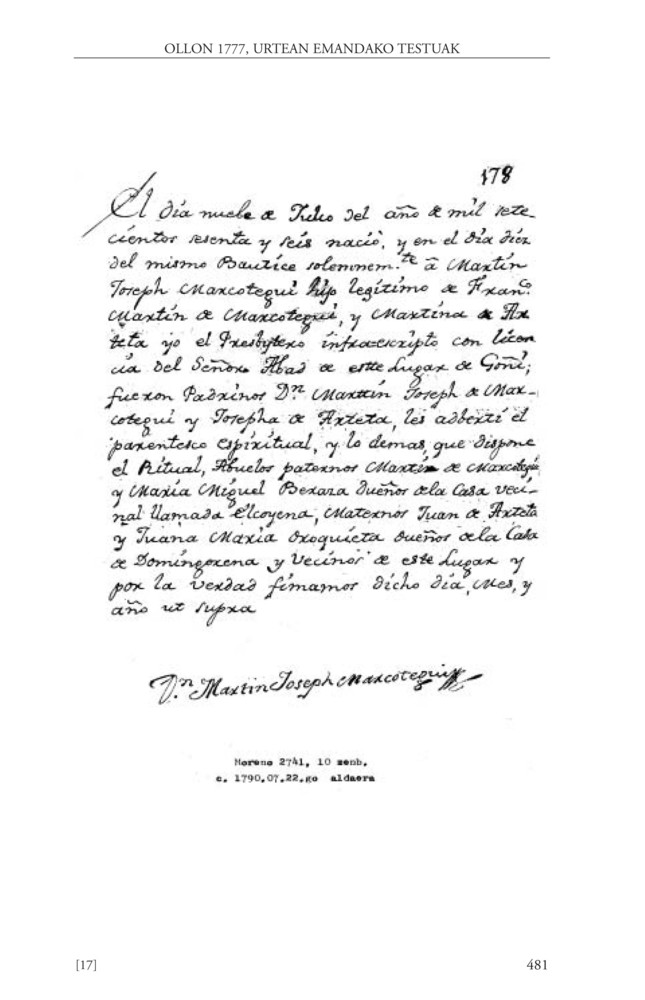 OLLON 1777, URTEAN EMANDAKO TESTUAK
178
El dia nuebe de Julio del año de mil sete-
cientos sesenta y seis nació, y en el dia diez
del mismo Bautice solemnem.te â Martin
Joseph Marcotegui hijo legitimo de Fran.co
Martin de Marcotegui, y Martina de Ar
teta yo el Presbytero infraescripto con licen
cia del Señor Abad de este Lugar de Goñi;
fueron Padrinos D.n Martin Joseph de Mar-
cotegui y Josepha de Arteta, les adberti el
parentesco espiritual, y lo demas, que dispone
el Ritual, Abuelos paternos Martin de Marcotegui
y Maria Miguel Beraza dueños de la Casa veci-
nal llamada Elcoyena, Maternos Juan de Arteta
y Juana Maria Oroquieta dueños de la Casa
de Domingorena y Vecinos de este Lugar y
por la verdad fimamos dicho dia, mes, y
año ut supra
D.n Martin Joseph Marcotegui
Moreno 2741, 10 zenb.
c. 1790.07.22.go aldaera
[17]
481